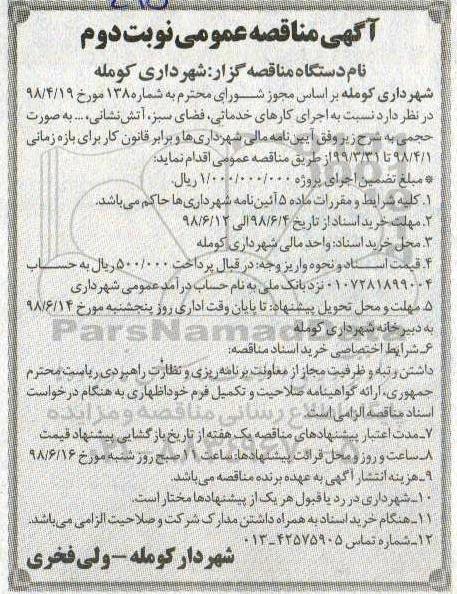 آگهی مناقصه عمومی نوبت دوم
نام دستگاه مناقصه گزار: شهرداری کومله
شهرداری کومله بر اساس مجوز شورای محترم به شماره ۱۳۸ مورخ ۹۸/۴/۱۹
در نظر دارد نسبت به اجرای کارهای خدماتی، فضای سبز، آتش نشانی، ... به صورت
حجمی به شرح زیر وفق آیین نامه مالی شهرداری ها و برابر قانون کار برای بازه زمانی
۹۸/۴/۱ تا ۹۹/۳/۳۱ از طریق مناقصه عمومی اقدام نماید:
* مبلغ تضمین اجرای پروژه ۱/۰۰۰/۰۰۰/۰۰۰ ریال.
۱. کلیه شرایط و مقررات ماده ۵ آئین نامه شهرداری ها حاکم می باشد.
۲. مهلت خرید اسناد از تاریخ ۹۸/۶/۴ الی ۹۸/۶/۱۲
۳. محل خرید اسناد: واحد مالی شهرداری کومله
۴. قیمت اسناد و نحوه واریز وجه: در قبال پرداخت ۵۰۰/۰۰۰ ریال به حساب
۰۱۰۷۲۸۱۸۹۹۰۰۴ نزد بانک ملی به نام حساب درآمد عمومی شهرداری
۵. مهلت و محل تحویل پیشنهاد: تا پایان وقت اداری روز پنجشنبه مورخ ۹۸/۶/۱۴
به دبیرخانه شهرداری کومله
۶_ شرایط اختصاصی خرید اسناد مناقصه:
داشتن رتبه و ظرفیت مجاز از معاونت برنامه ریزی و نظارت راهبردی ریاست محترم
جمهوری، ارائه گواهینامه صلاحیت و تکمیل فرم خوداظهاری به هنگام درخواست
اسناد مناقصه الزامی است
۷_ مدت اعتبار پیشنهادهای مناقصه یک هفته از تاریخ بازگشایی پیشنهاد قیمت
۸_ ساعت و روز و محل قرائت پیشنهادها: ساعت ۱۱ صبح روز شنبه مورخ ۹۸/۶/۱۶
۹_ هزینه انتشار آگهی به عهده برنده مناقصه می باشد.
۱۰_ شهرداری در رد یا قبول هر یک از پیشنهادها مختار است.
۱۱_ هنگام خرید اسناد به همراه داشتن مدارک شرکت و صلاحیت الزامی می باشد.
۱۲_ شماره تماس ۴۲۵۷۵۹۰۵-۰۱۳
شهردار کومله – ولی فخری
ParsNamad